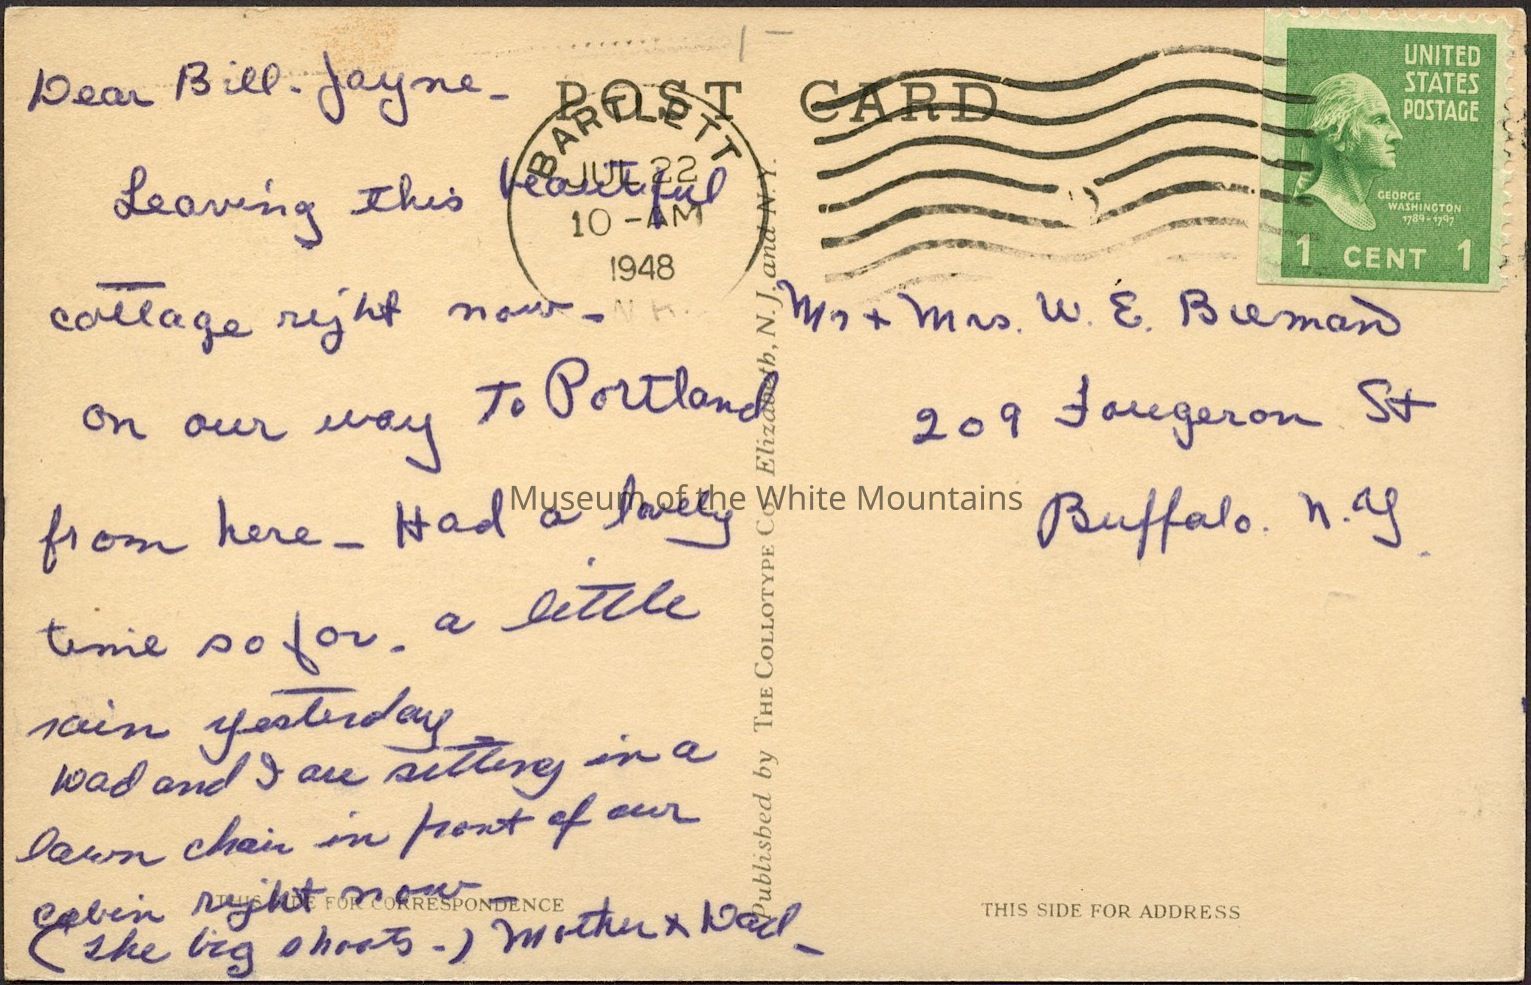 Dear Bill-Jayne-
Leaving this beautiful
cottage right now-
on our way To Portland
from here - Had a lovely
time so far - a little
rain yesterday
Dad and I are sitting in a
lawn chair in front of our
cabin right now
(The big shots-) Mother & Dad-
THIS SIDE FOR CORRESPONDENCE
POST CARD
BARTLETT
JUL 22
10-AM
1948
N.H.
Published by THE COLLOTYPE Co., Elizabeth, N. J. and N.Y.
UNITED
STATES
POSTAGE
GEORGE
WASHINGTON
1789-1797
1 CENT 1
Mr & Mrs. W. E. Bieman
209 Fougeron St
Buffalo. N.Y.
THIS SIDE FOR ADDRESS
Museum of the White Mountains